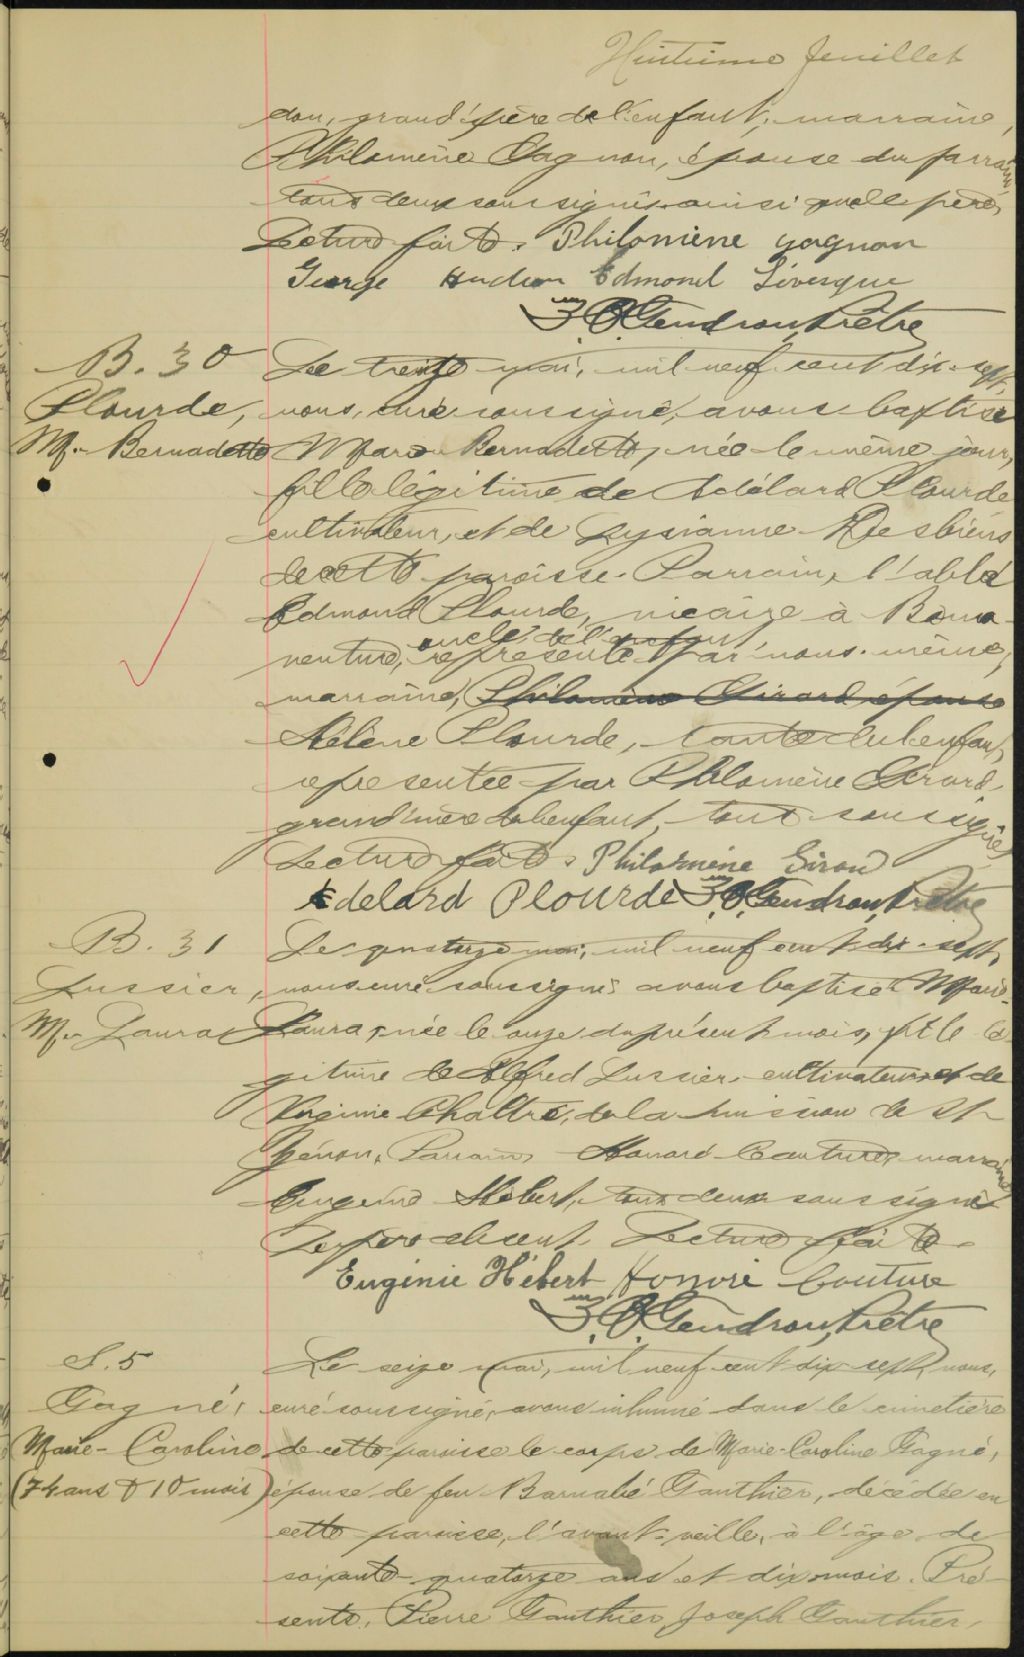 Huitième feuillet
don, grand'père de l'enfant; marraine,
Philomène Gagnon, épouse du parrain,
tous deux soussignés ainsi que le père,
Lecture faite. Philomène gagnon
George Hudon Edmond Lévesque
Gendron, Prêtre
B. 30
Plourde,
M. Bernadette
Le treize mai, mil neuf cent dix-sept,
nous, curé soussigné, avons baptisé
Marie Bernadette, née le même jour,
fille légitime de Adélard Plourde
cultivateur, et de Lysianne Desbiens
de cette paroisse. Parrain, l'abbé
Edmond Plourde, vicaire à Bona-
oncle de l'enfant
venture, représenté par nous-même,
marraine, Philomène Girard épouse
Hélène Plourde, tante de l'enfant,
représentée par Philomène Girard,
grand'mère de l'enfant, tous soussignés
Lecture faite. Philomène Girard
Adelard Plourde Gendron, Prêtre
B. 31
Lussier,
M. Laura
Le quatorze mai, mil neuf cent dix-sept,
nous curé soussigné avons baptisé Marie-
Laura, née le onze du présent mois, fille lé-
gitime de Alfred Lussier, cultivateur, et de
Virginie de la mission de St
Zénon. Parrain, Honoré Couture, marraine
Eugénie Hébert, tous deux soussignés
Le père absent. Lecture faite.
Eugénie Hébert Honoré Couture
Gendron, Prêtre
S. 5
Gagné,
Marie-Caroline
(74 ans & 10 mois)
Le seize mai, mil neuf cent dix-sept, nous,
curé soussigné, avons inhumé dans le cimetière
de cette paroisse le corps de Marie-Caroline Gagné,
épouse de feu Barnabé Gauthier, décédée en
cette paroisse, l'avant-veille, à l'âge de
soixante-quatorze ans et dix mois. Pré-
sents, Pierre Gauthier, Joseph Gauthier,